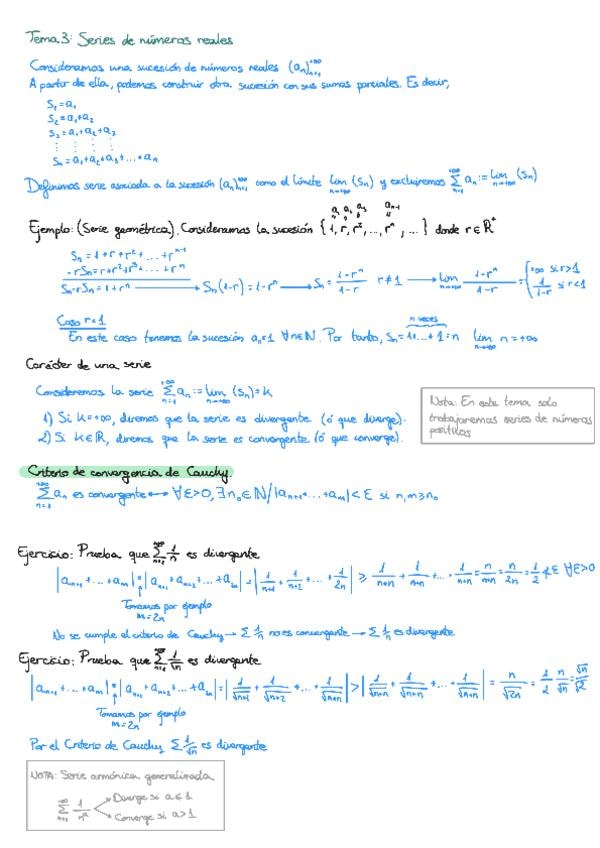 Tema 3: Series de números reales
Consideramos una sucesión de números reales (aₙ)ₙ₌₁^+∞
A partir de ella, podemos construir otra sucesión con sus sumas parciales. Es decir,
S₁=a₁
S₂=a₁+a₂
S₃=a₁+a₂+a₃
⋮ ⋮ ⋮ ⋮
Sₙ=a₁+a₂+a₃+...+aₙ
Definimos serie asociada a la sucesión (aₙ)ₙ₌₁^+∞ como el límite lim n→+∞ (Sₙ) y escribiremos Σₙ₌₁^+∞ aₙ := lim n→+∞ (Sₙ)
Ejemplo: (Serie geométrica). Consideramos la sucesión {1, r, r², ..., rⁿ, ...} donde r∈ℝ⁺
Sₙ=1+r+r²+...+rⁿ⁻¹
-rSₙ=r+r²+r³+...+rⁿ
Sₙ-rSₙ=1+rⁿ → Sₙ(1-r)=1-rⁿ → Sₙ=(1-rⁿ)/(1-r) r≠1 → lim n→+∞ (1-rⁿ)/(1-r) = { +∞ si r>1
1/(1-r) si r<1
Caso r=1
n veces
En este caso tenemos la sucesión aₙ=1 ∀n∈ℕ. Por tanto, Sₙ=1+...+1=n lim n→+∞ n=+∞
Carácter de una serie
Consideremos la serie Σₙ₌₁^+∞ aₙ := lim n→+∞ (Sₙ)=K
1) Si K=+∞, diremos que la serie es divergente (ó que diverge).
2) Si K∈ℝ, diremos que la serie es convergente (ó que converge).
Nota: En este tema solo
trabajaremos series de números
positivos
Criterio de convergencia de Cauchy.
Σₙ₌₁^+∞ aₙ es convergente ↔ ∀ε>0, ∃n₀∈ℕ/|aₙ₊₁+...+aₘ|<ε si n,m≥n₀
Ejercicio: Prueba que Σₙ₌₁^+∞ 1/n es divergente
|aₙ₊₁+...+aₘ| = |aₙ₊₁+aₙ₊₂+...+a₂ₙ| = |1/(n+1) + 1/(n+2) + ... + 1/2n| ≥ 1/(n+n) + 1/(n+n) + ... + 1/(n+n) = n/(n+n) = n/2n = 1/2 ≮ε ∀ε>0
Tomamos por ejemplo
m=2n
No se cumple el criterio de Cauchy → Σ 1/n no es convergente → Σ 1/n es divergente
Ejercicio: Prueba que Σₙ₌₁^+∞ 1/√n es divergente
|aₙ₊₁+...+aₘ| = |aₙ₊₁+aₙ₊₂+...+a₂ₙ| = |1/√(n+1) + 1/√(n+2) + ... + 1/√(n+n)| > |1/√(n+n) + 1/√(n+n) + ... + 1/√(n+n)| = n/√2n = 1/2 n/√n = √n/√2
Tomamos por ejemplo
m=2n
Por el Criterio de Cauchy Σ 1/√n es divergente
NOTA: Serie armónica generalizada
Σₙ₌₁^+∞ 1/nᵃ
Diverge si a≤1
Converge si a>1